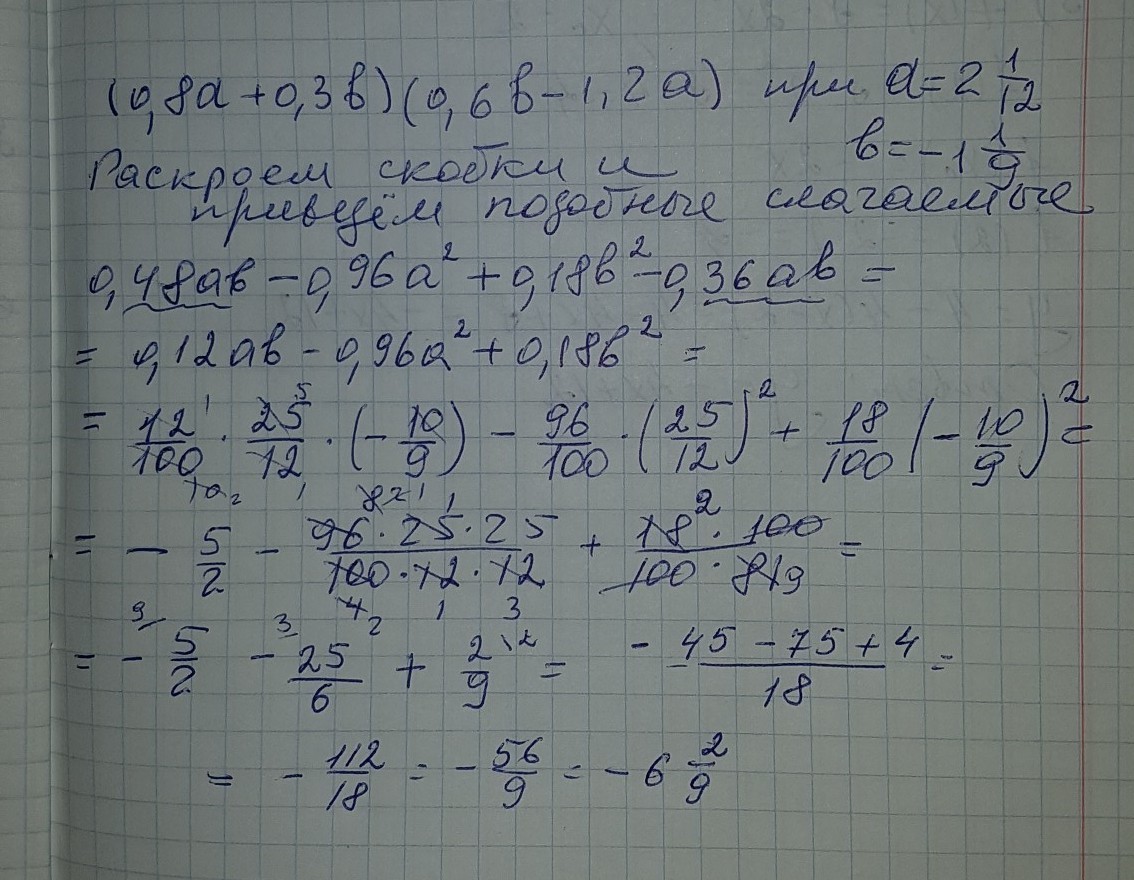 (0,8a + 0,3b)(0,6b - 1,2a) при a = 2 1/12
b = -1 1/9
Раскроем скобки и
приведём подобные слагаемые
0,48ab - 0,96a² + 0,18b² - 0,36ab =
= 0,12ab - 0,96a² + 0,18b² =
= 12/100 · 25/12 · (-10/9) - 96/100 · (25/12)² + 18/100 (-10/9)² =
= - 5/2 - 96·25·25/100·12·12 + 18·100/100·81 =
= - 5/2 - 25/6 + 2/9 = -45-75+4/18 =
= - 112/18 = - 56/9 = - 6 2/9